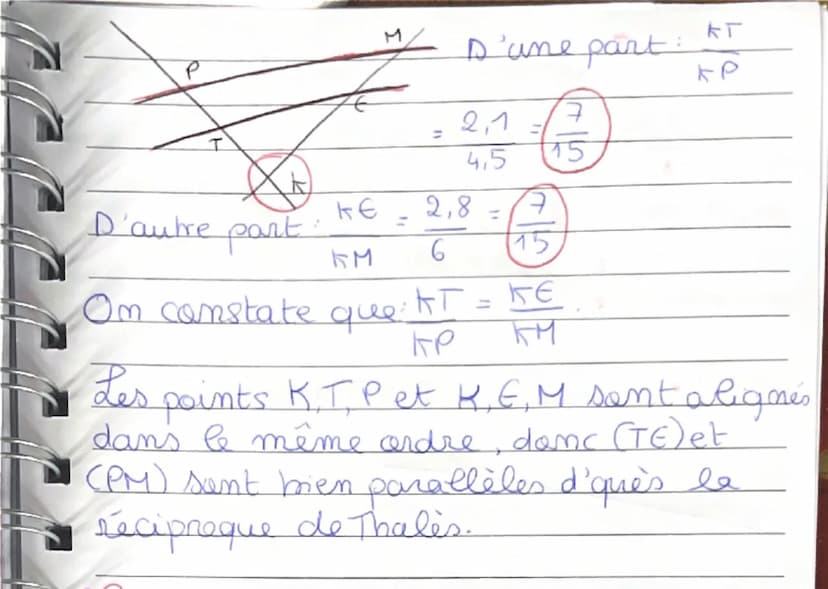 P M
T E
K
D'une part : KT/KP
= 2,1/4,5 = 7/15
D'autre part : KE/KM = 2,8/6 = 7/15
On constate que : KT/KP = KE/KM.
Les points K, T, P et K, E, M sont alignés
dans le même ordre, donc (TE) et
(PM) sont bien parallèles d'après la
réciproque de Thalès.